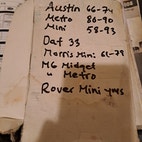 Austin 66-74
Metro 80-90
Mini 58-93
Daf 33
Morris Mini 61-78
MG Midget
" Metro
Rover Mini